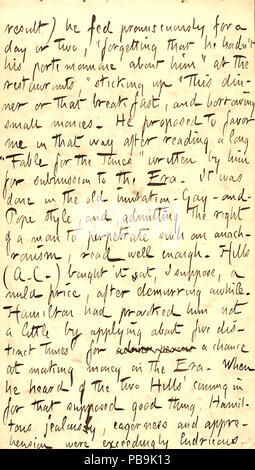 result) he fed promiscuously for a
day or two, "forgetting that he hadn't
his porte monnaie about him" at the
restaurants, "sticking up" this din-
ner or that breakfast, and borrowing
small monies. He proposed to favor
me in that way after reading a long
"Fable for the Times" written by him
for submission to the Era. It was
done in the old imitation-Gay-and-
Pope style and, admitting the right
of a man to perpetrate such an anach-
ronism, read well enough. Hills
(A.C.) bought it at, I suppose, a
mild price, after demurring awhile.
Hamilton had provoked him not
a little by applying about five dis-
tinct times for a chance
at making money on the Era. When
he heard of the two Hills' coming in
for that supposed good thing, Hamil-
tons jealousy, eagerness and appre-
hension were exceedingly ludicrous.
alamy stock photo
PB9K13